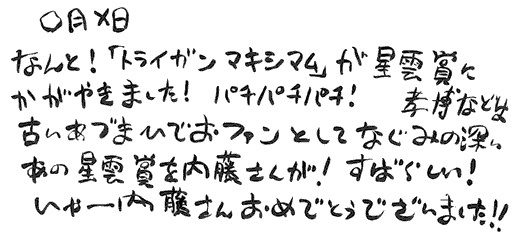 〇月×日
なんと!「トライガンマキシマム」が星雲賞に
かがやきました! パチパチパチ! 孝博などは
古いあづまひでおファンとしてなぐみの深い
あの星雲賞を内藤さんが! すばらしい!
いやー内藤さんおめでとうございました!!